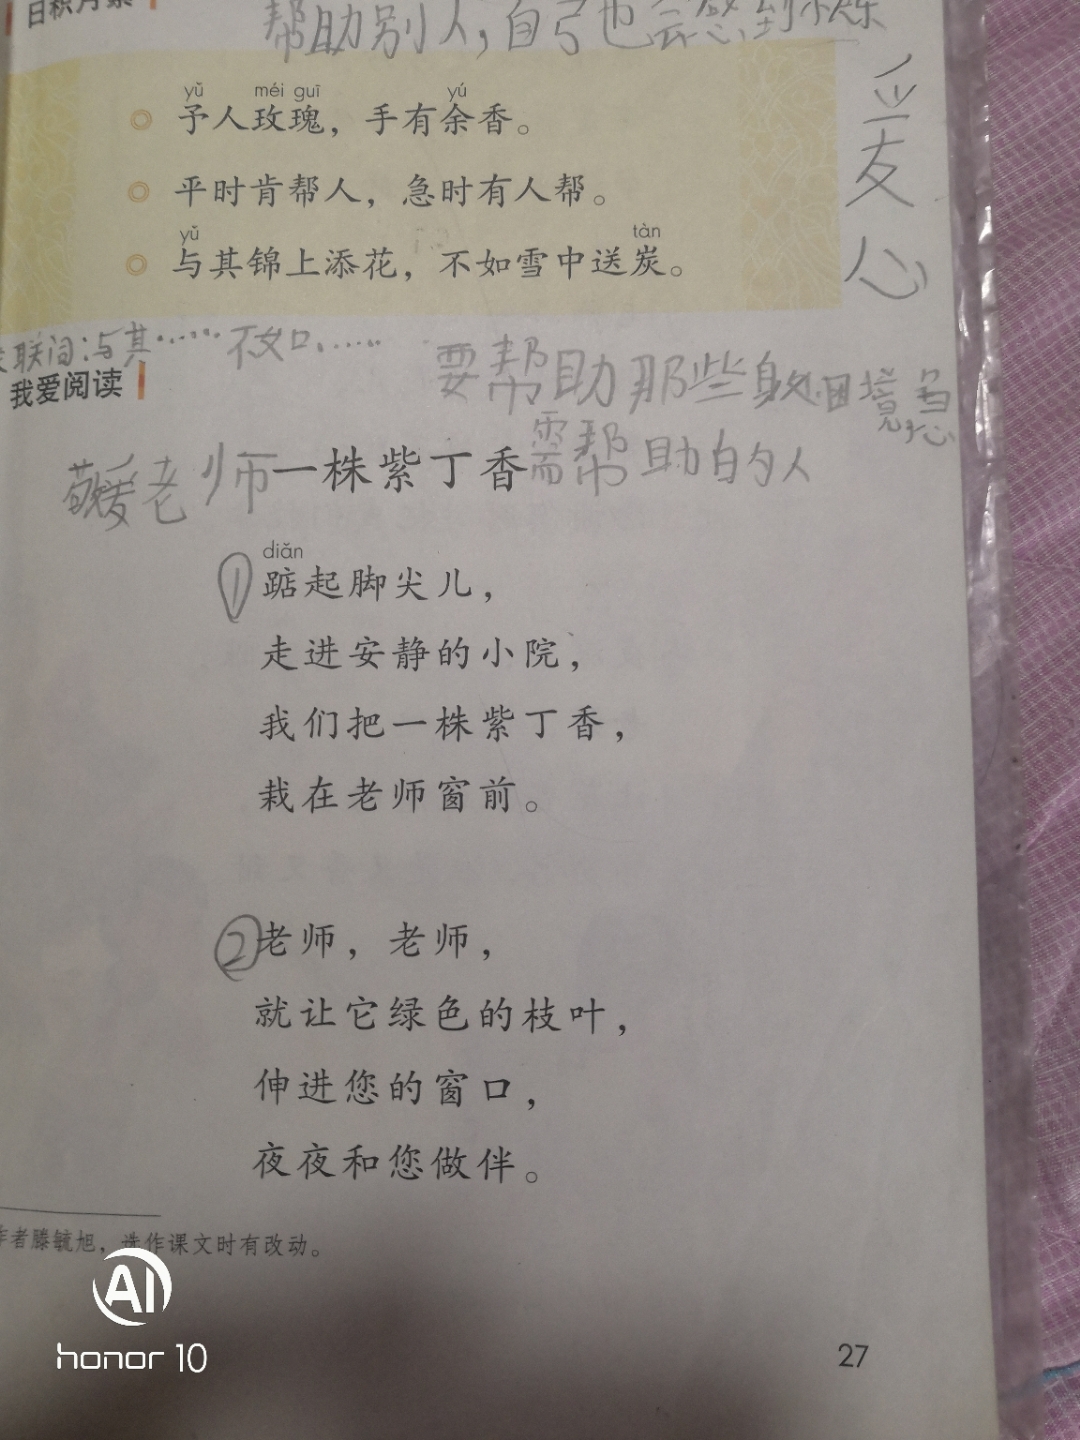 日积月累
帮助别人，自己也会感到快乐
yǔ méi guī yú
予人玫瑰，手有余香。
平时肯帮人，急时有人帮。
yǔ tàn
与其锦上添花，不如雪中送炭。
爱心
关联词：与其……不如……
要帮助那些身处困境急
需帮助的人
我爱阅读
敬爱老师
一株紫丁香
diǎn
①踮起脚尖儿，
走进安静的小院，
我们把一株紫丁香，
栽在老师窗前。
②老师，老师，
就让它绿色的枝叶，
伸进您的窗口，
夜夜和您做伴。
作者滕毓旭，选作课文时有改动。
AI
honor 10
27